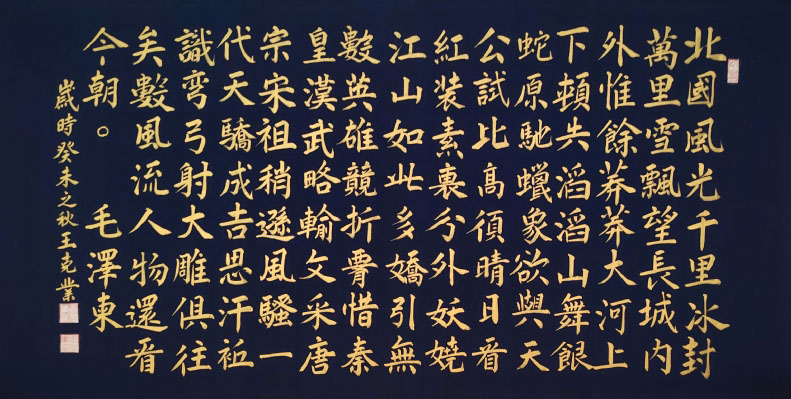 北國風光千里冰封
萬里雪飄望長城内
外惟餘莽莽大河上
下頓失滔滔山舞銀
蛇原馳蠟象欲與天
公試比高須晴日看
紅装素裹分外妖嬈
江山如此多嬌引無
數英雄競折腰惜秦
皇漢武略輸文采唐
宗宋祖稍遜風騷一
代天驕成吉思汗袛
識彎弓射大雕俱往
矣數風流人物還看
今朝。毛澤東
歲時癸未之秋王克業